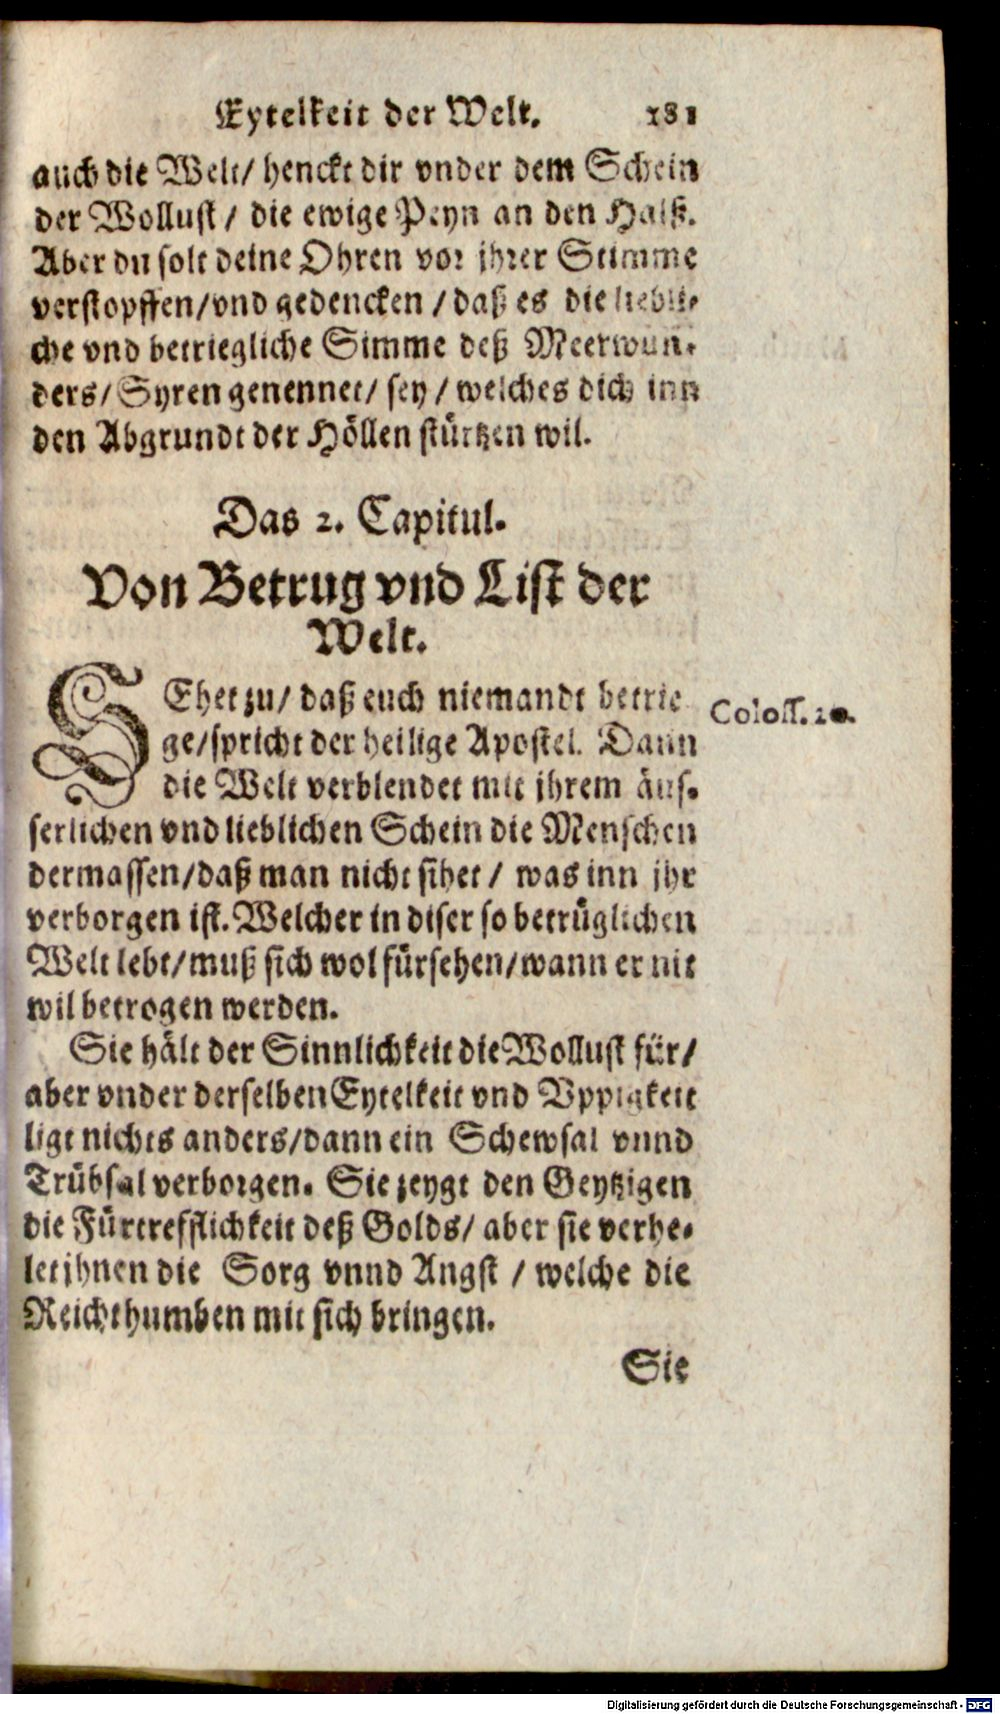 Eytelkeit der Welt. 181
auch die Welt/ henckt dir vnder dem Schein
der Wollust / die ewige Peyn an den Halß.
Aber du solt deine Ohren vor jhrer Stimme
verstopffen/vnd gedencken / daß es die liebli-
che vnd betriegliche Simme deß Meerwun-
ders/ Syren genennet/ sey / welches dich inn
den Abgrundt der Höllen stürtzen wil.
Das 2. Capitul.
Von Betrug vnd List der
Welt.
SEhet zu/ daß euch niemandt betrie
ge/spricht der heilige Apostel. Dann
die Welt verblendet mit jhrem äus-
serlichen vnd lieblichen Schein die Menschen
dermassen/daß man nicht sihet / was inn jhr
verborgen ist. Welcher in diser so betrüglichen
Welt lebt/muß sich wol fürsehen/wann er nit
wil betrogen werden.
Sie hält der Sinnlichkeit die Wollust für/
aber vnder derselben Eytelkeit vnd Vppigkeit
ligt nichts anders/dann ein Schewsal vnnd
Trübsal verborgen. Sie zeygt den Geytzigen
die Fürtrefflichkeit deß Golds/ aber sie verhe-
let jhnen die Sorg vnnd Angst / welche die
Reichthumben mit sich bringen.
Sie
Coloss.
Digitalisierung gefördert durch die Deutsche Forschungsgemeinschaft - DFG